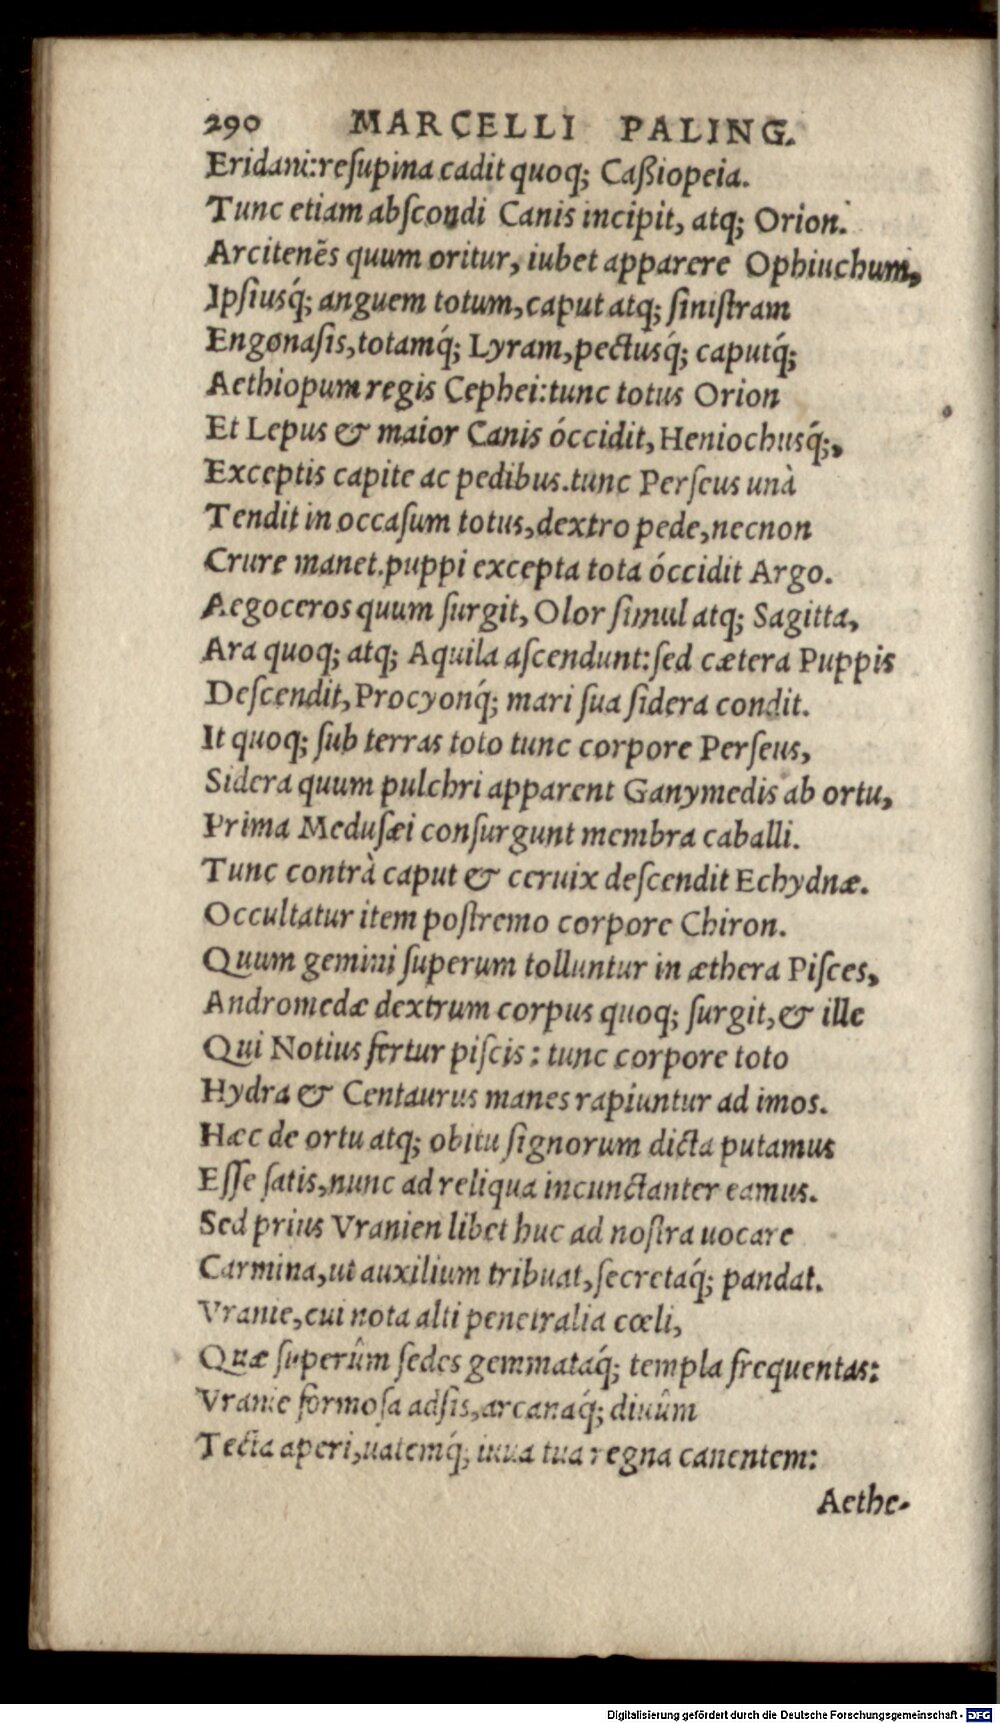 290 MARCELLI PALING.
Eridani:reſupina cadit quoq; Caßiopeia.
Tunc etiam abſcondi Canis incipit, atq; Orion.
Arcitenẽs quum oritur, iubet apparere Ophiuchum,
Ipſiusq́; anguem totum, caput atq; ſiniſtram
Engonaſis, totamq́; Lyram, pectusq́; caputq́;
Aethiopum regis Cephei: tunc totus Orion
Et Lepus & maior Canis óccidit, Heniochusq́;,
Exceptis capite ac pedibus. tunc Perſeus unà
Tendit in occaſum totus, dextro pede, necnon
Crure manet. puppi excepta tota óccidit Argo.
Aegoceros quum ſurgit, Olor ſimul atq; Sagitta,
Ara quoq; atq; Aquila aſcendunt: ſed cætera Puppis
Deſcendit, Procyonq́; mari ſua ſidera condit.
It quoq; ſub terras toto tunc corpore Perſeus,
Sidera quum pulchri apparent Ganymedis ab ortu,
Prima Meduſæi conſurgunt membra caballi.
Tunc contrà caput & ceruix deſcendit Echydnæ.
Occultatur item poſtremo corpore Chiron.
Quum gemini ſuperum tolluntur in æthera Piſces,
Andromedæ dextrum corpus quoq; ſurgit, & ille
Qui Notius fertur piſcis: tunc corpore toto
Hydra & Centaurus manes rapiuntur ad imos.
Hæc de ortu atq; obitu ſignorum dicta putamus
Eſſe ſatis, nunc ad reliqua incunctanter eamus.
Sed prius Vranien libet huc ad noſtra uocare
Carmina, ut auxilium tribuat, ſecretaq́; pandat.
Vranie, cui nota alti penetralia cœli,
Quæ ſuperûm ſedes gemmataq́; templa frequentas:
Vranie formoſa adſis, arcanaq́; diuûm
Tecta aperi, uatemq́; iuua tua regna canentem:
Aethe-
Digitalisierung gefördert durch die Deutsche Forschungsgemeinschaft - DFG